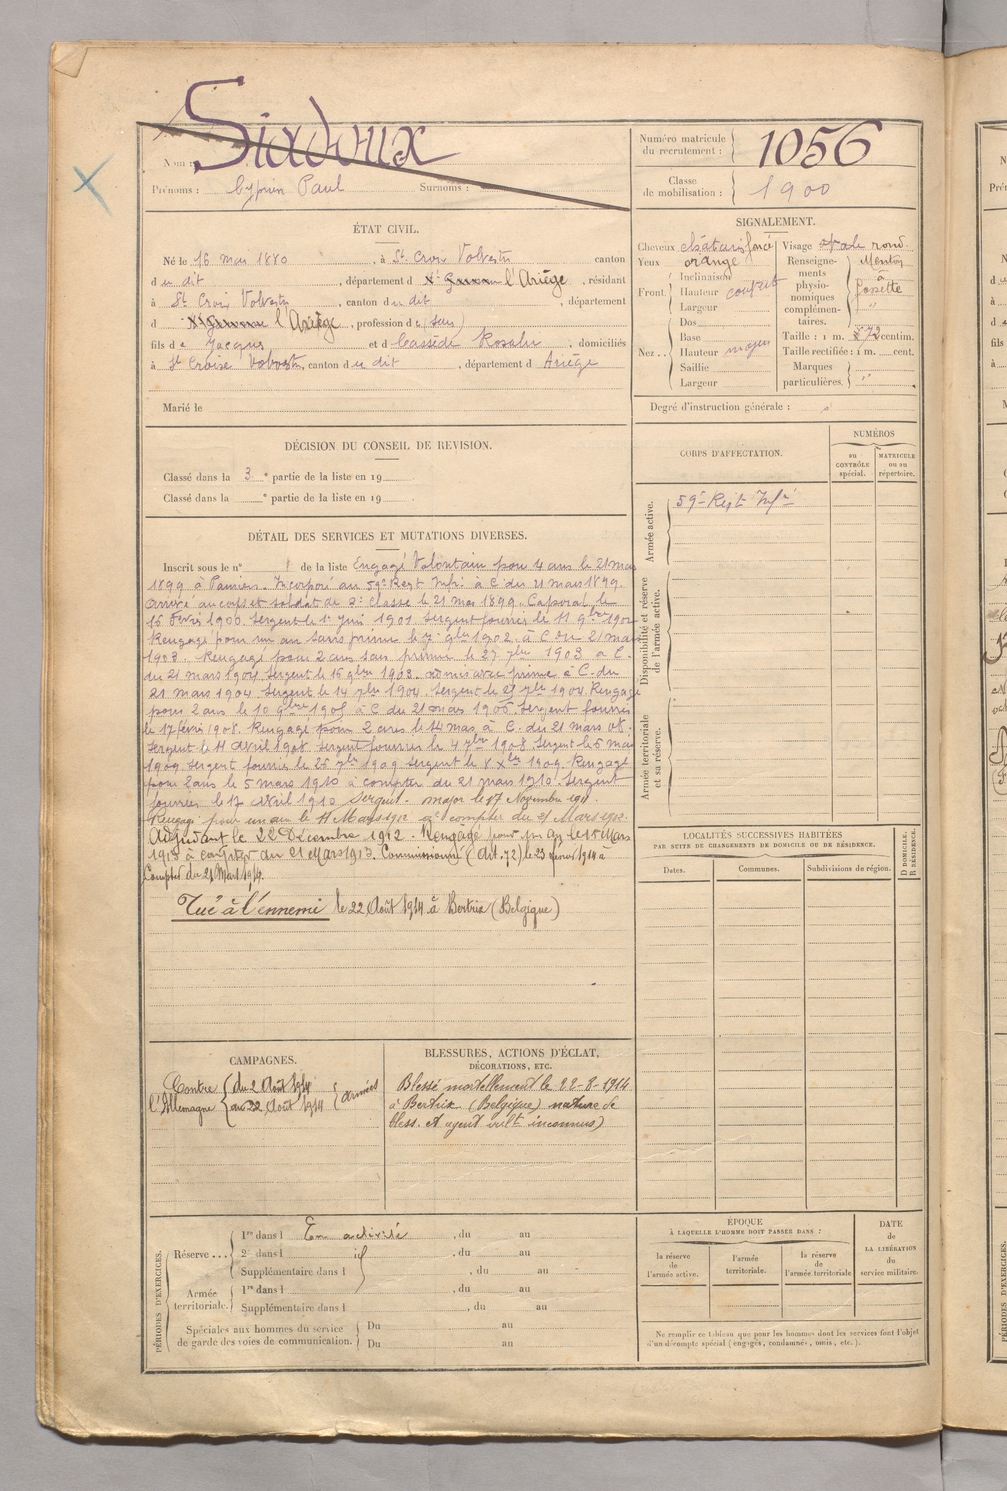 Siadoux
Nom :
Prénoms : Cyprien Paul Surnoms :
Numéro matricule du recrutement : 1056
Classe de mobilisation : 1900
ÉTAT CIVIL.
Né le 16 mai 1880, à St Croix Volvestre canton
du dit, département d l'Ariège, résidant
à St Croix Volvestre, canton du dit, département
d l'Ariège, profession de (sans)
fils de Jacques et d Casséde Rosalie, domiciliés
à St Croise Volvestre, canton du dit, département d Ariège
Marié le
DÉCISION DU CONSEIL DE REVISION.
Classé dans la 3e partie de la liste en 19
Classé dans la e partie de la liste en 19
DÉTAIL DES SERVICES ET MUTATIONS DIVERSES.
Inscrit sous le n° de la liste Engagé Volontaire pour 4 ans le 21 mars
1899 à Pamiers. Incorporé au 59e Regt Infie à C. du 21 mars 1899.
Arrivé au corps et soldat de 2e classe le 21 mars 1899. Caporal le
16 févri 1900. Sergent le 1er juin 1901. Sergent fourrier le 11 9bre 1902
Rengagé pour un an sans prime le 9bre 1902. à C. du 21 mars
1903. Rengagé pour 2 ans sans prime le 27 7bre 1903 à C.
du 21 mars 1904. Sergent le 16 9bre 1903. admis avec prime à C. du
21 mars 1904. Sergent le 14 7bre 1904. Sergent le 27 7bre 1904. Rengagé
pour 2 ans le 10 9bre 1905 à C. du 21 mars 1906. Sergent fourrier
le 17 févri 1908. Rengagé pour 2 ans le 14 mars à C. du 21 mars 08.
Sergent le 11 Avril 1908. Sergent fourrier le 4 7bre 1908. Sergent le 5 mars
1909. Sergent fourrier le 25 7bre 1909 Sergent le 8 Xbre 1909. Rengagé
pour 2 ans le 5 mars 1910 à compter du 21 mars 1910. Sergent
fourrier le 17 Avril 1910 Sergent-major le 17 Novembre 1911.
Rengagé pour un an le 11 Mars 1912 à compter du 21 Mars 1912.
Adjudant le 22 Décembre 1912. Rengagé pour un an le 15 Mars
1913 à compter du 21 Mars 1913. Commissionné (Art. 72) le 23 février 1914 à
Compter du 21 Mars 1914.
Tué à l'ennemi le 22 Août 1914 à Bertrix (Belgique)
CAMPAGNES.
Contre l'Allemagne
du 2 Août 1914
au 22 Août 1914
(armées
BLESSURES, ACTIONS D'ÉCLAT,
DÉCORATIONS, ETC.
Blessé mortellement le 22-8-1914
à Bertrix (Belgique) nature de
bless. et agent vult inconnus)
PÉRIODES D'EXERCICES.
Réserve...
1re dans l En activité, du au
2e dans l id, du au
Supplémentaire dans l, du au
Armée territoriale.
1re dans l, du au
Supplémentaire dans l, du au
Spéciales aux hommes du service
de garde des voies de communication.
Du au
Du au
SIGNALEMENT.
Cheveux châtains foncé
Yeux orangé
Front
Inclinaison
Hauteur
Largeur
Nez..
Dos
Base
Hauteur moyen
Saillie
Largeur
Visage ovale rond
Renseignements physionomiques complémentaires. Menton à fossette
Taille : 1 m. 72 centim.
Taille rectifiée : 1 m. cent.
Marques particulières. "
Degré d'instruction générale :
CORPS D'AFFECTATION.
NUMÉROS
AU CONTRÔLE spécial.
MATRICULE ou au répertoire.
Armée active.
59e Regt Infie
Disponibilité et réserve de l'armée active.
Armée territoriale et sa réserve.
LOCALITÉS SUCCESSIVES HABITÉES
PAR SUITE DE CHANGEMENTS DE DOMICILE OU DE RÉSIDENCE.
Dates.
Communes.
Subdivisions de région.
D DOMICILE.
R RÉSIDENCE.
ÉPOQUE
À LAQUELLE L'HOMME DOIT PASSER DANS :
la réserve de l'armée active.
l'armée territoriale.
la réserve de l'armée territoriale
DATE
DE LA LIBÉRATION
du service militaire.
Ne remplir ce tableau que pour les hommes dont les services font l'objet
d'un décompte spécial (engagés, condamnés, omis, etc.).